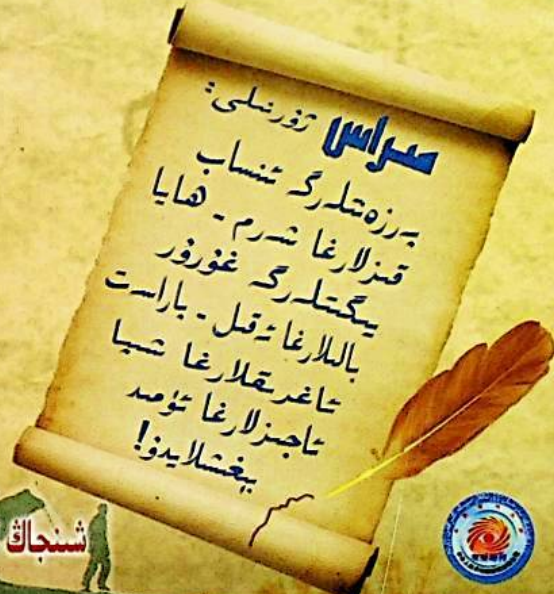 مىراس ژۇرنىلى:
پەرزەنتلەرگە ئىنساب
قىزلارغا شەرم - ھايا
يىگىتلەرگە غۇرۇر
بالىلارغا ئەقىل - پاراسەت
ئاغرىقلارغا شىپا
ئاجىزلارغا ئۈمىد
بېغىشلايدۇ!
شىنجاڭ